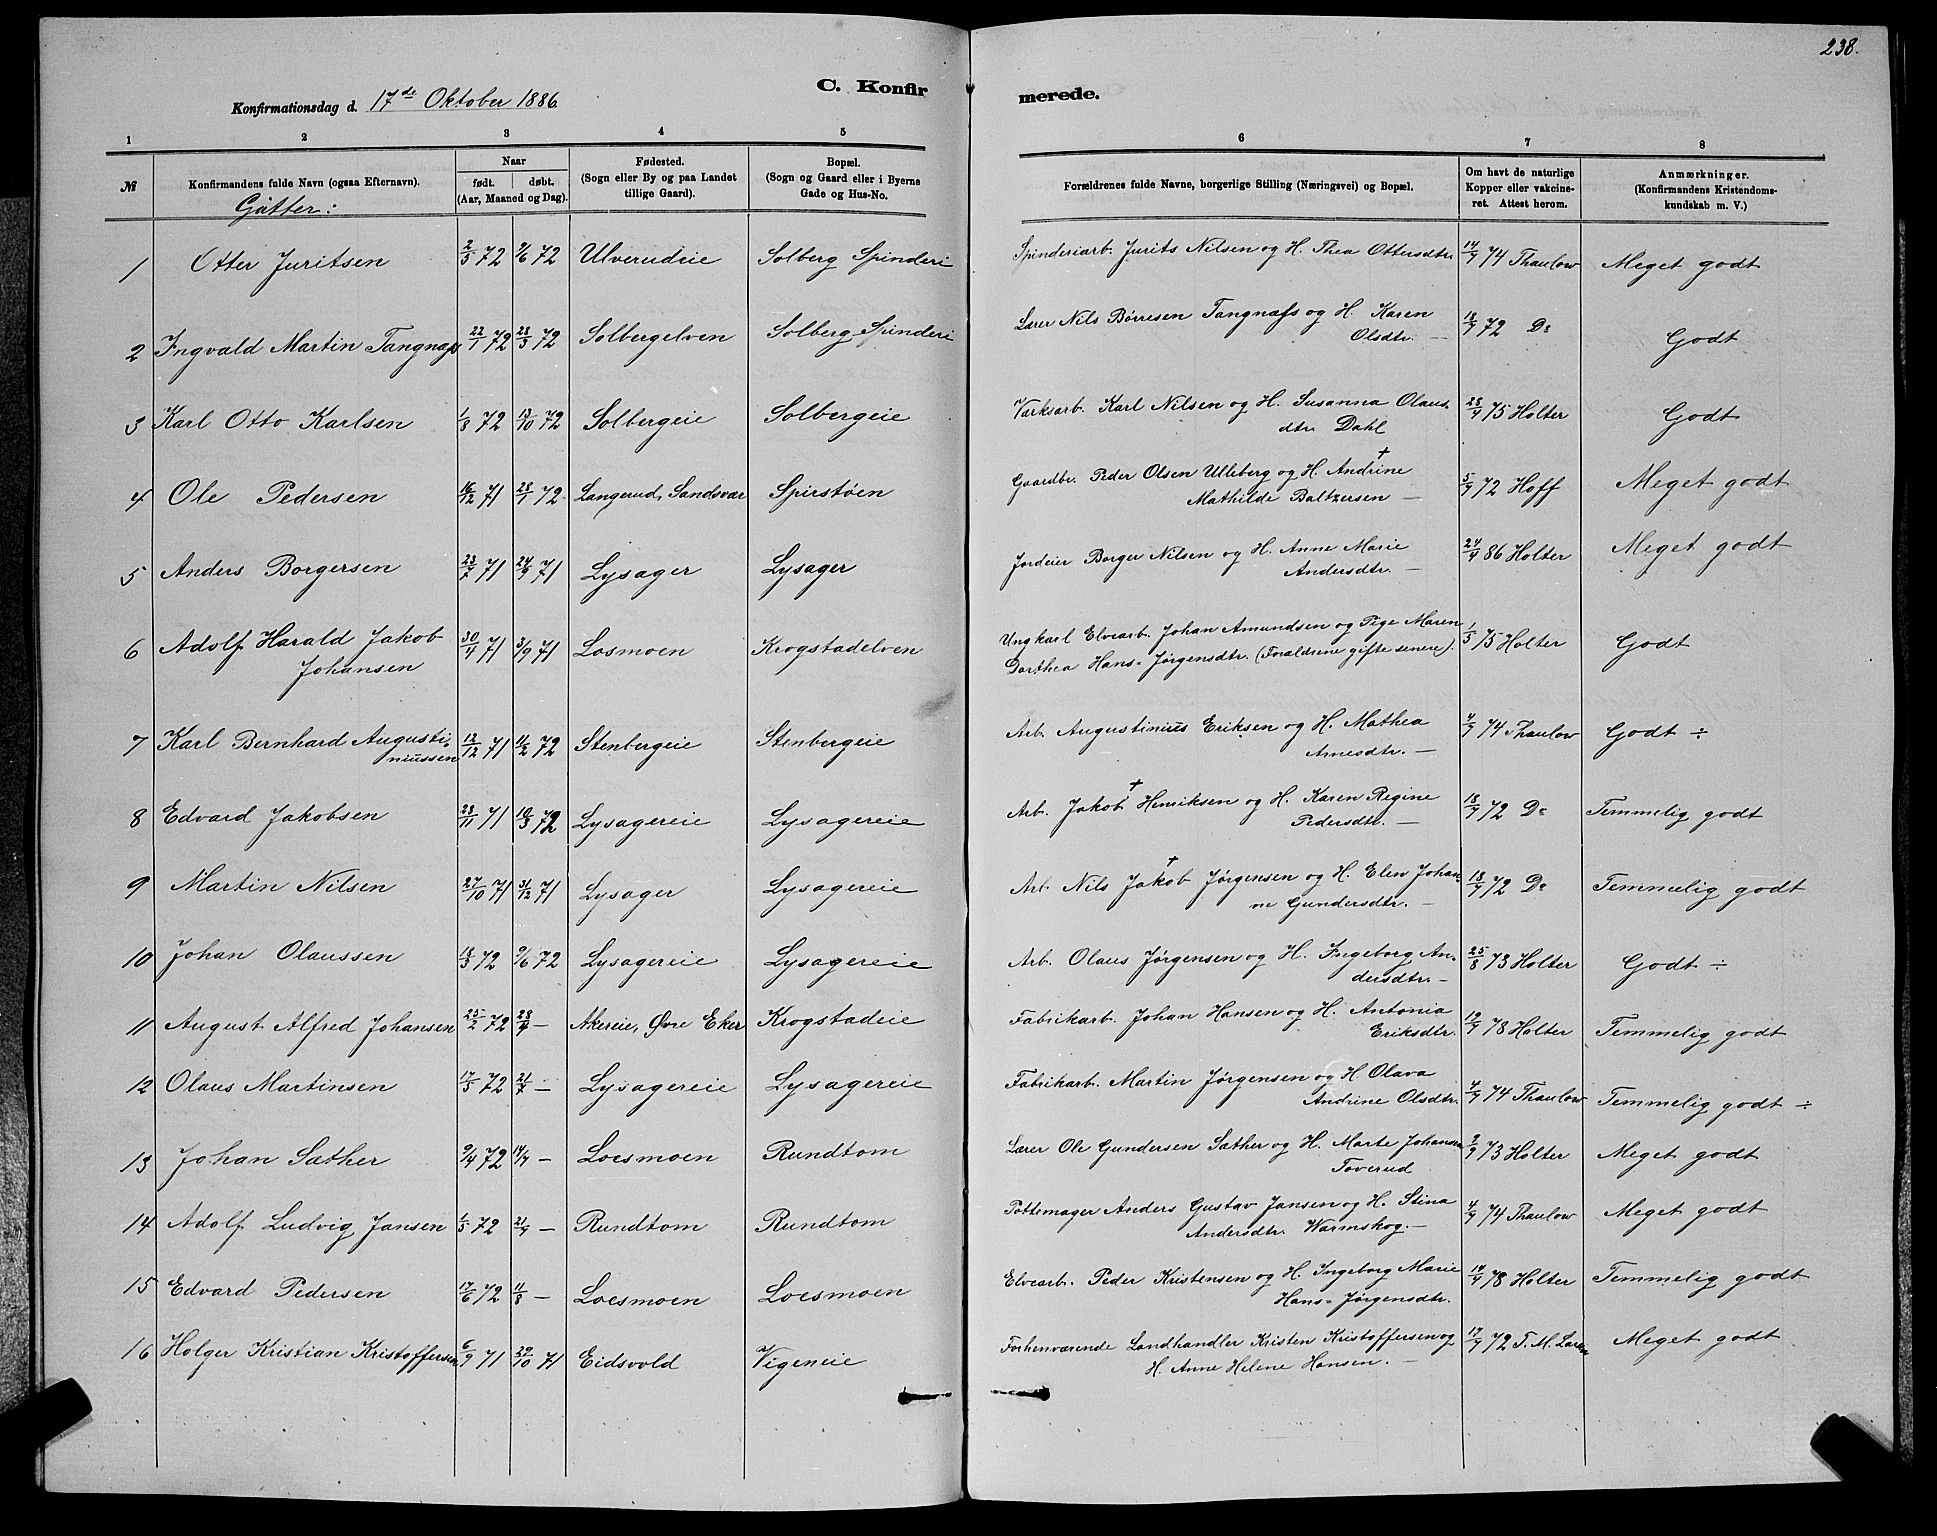 238.
C. Konfirmerede.
Konfirmationsdag d. 17de Oktober 1886.
1 2 3 4 5 6 7 8
№ Konfirmandens fulde Navn (ogsaa Efternavn). Naar født. døbt. (Aar, Maaned og Dag). Fødested. (Sogn eller By og paa Landet tillige Gaard). Bopæl. (Sogn og Gaard eller i Byerne Gade og Hus-No. Forældrenes fulde Navne, borgerlige Stilling (Næringsvei) og Bopæl. Om havt de naturlige Kopper eller vakcineret. Attest herom. Anmærkninger. (Konfirmandens Kristendomskundskab m. V.)
Gutter:
1 Otter Juritsen 2/5 72 9/6 72 Ulverudeie Solberg Spinderi Spinderiarb. Jurits Nilsen og H. Thea Ottersdtr. 14/9 74 Thaulow Meget godt
2 Ingvald Martin Tangnæs 22/1 72 28/3 72 Solbergelven Solberg Spinderi Lærer Nils Börresen Tangnæfs og H. Karen
Olsdtr. — 18/9 72 Do Godt
3 Karl Otto Karlsen 1/8 72 13/10 72 Solbergeie Solbergeie Værksarb. Karl Nilsen og H. Susanna Olaus-
dtr. Dahl 28/9 75 Holter Godt
4 Ole Pedersen 16/12 71 28/1 72 Langerud, Sandsvær Spirstøen Gaardbr. Peder Olsen Ulleberg og H. Andrine †
Mathilde Baltzersen — 5/9 72 Hoff Meget godt
5 Anders Borgersen 23/7 71 24/9 71 Lysager Lysager Jordeier Borger Nilsen og H. Anne Marie
Andersdtr. — 24/4 86 Holter Meget godt
6 Adolf Harald Jakob
Johansen 30/4 71 3/9 71 Losmoen Krogstadelven Ungkarl Elvearb. Johan Amundsen og Pige Maren
Dorthea Hans-Jørgensdtr. (Forældrene gifte senere). 1/5 75 Holter Godt
7 Karl Bernhard Augusti-
niussen 12/12 71 11/2 72 Stenbergeie Stenbergeie Arb. Augustinius Eriksen og H. Mathea
Arnesdtr. — 4/9 74 Thaulow Godt ÷
8 Edvard Jakobsen 23/11 71 10/3 72 Lysagereie Lysagereie Arb. Jakob † Henriksen og H. Karen Regine
Pedersdtr. — 18/9 72 Do Temmelig godt
9 Martin Nilsen 27/10 71 31/12 71 Lysager Lysagereie Arb. Nils Jakob † Jørgensen og H. Elen Johan-
ne Gundersdtr. — 18/9 72 Do Temmelig godt
10 Johan Olaussen 18/3 72 9/6 72 Lysagereie Lysagereie Arb. Olaus Jørgensen og H. Ingeborg An-
dersdtr. — 25/8 73 Holter Godt ÷
11 August Alfred Johansen 25/2 72 28/4 — Akereie, Øvre Eker Krogstadeie Fabrikarb. Johan Hansen og H. Antonia
Eriksdtr. 19/9 78 Holter Temmelig godt
12 Olaus Martinsen 17/5 72 21/7 — Lysagereie Lysagereie Fabrikarb. Martin Jørgensen og H. Olava
Andrine Olsdtr. 4/9 74 Thaulow Temmelig godt ÷
13 Johan Sæther 9/4 72 14/7 — Loesmoen Rundtom Lærer Ole Gundersen Sæther og H. Marte Johansen
Toverud 2/9 73 Holter Meget godt
14 Adolf Ludvig Jansen 1/5 72 21/7 — Rundtom Rundtom Pottemager Anders Gustav Jansen og H. Stina
Andersdtr. Warmskog. — 4/9 74 Thaulow Meget godt
15 Edvard Pedersen 17/6 72 11/8 — Loesmoen Loesmoen Elvearb. Peder Kristensen og H. Ingeborg Marie
Hans-Jørgensdtr. 19/9 78 Holter Temmelig godt
16 Holger Kristian Kristoffersen 6/9 71 29/10 71 Eidsvold Vigeneie Forhenværende Landhandler Kristen Kristoffersen og
H. Anne Helene Hansen. — 17/9 72 Meget godt